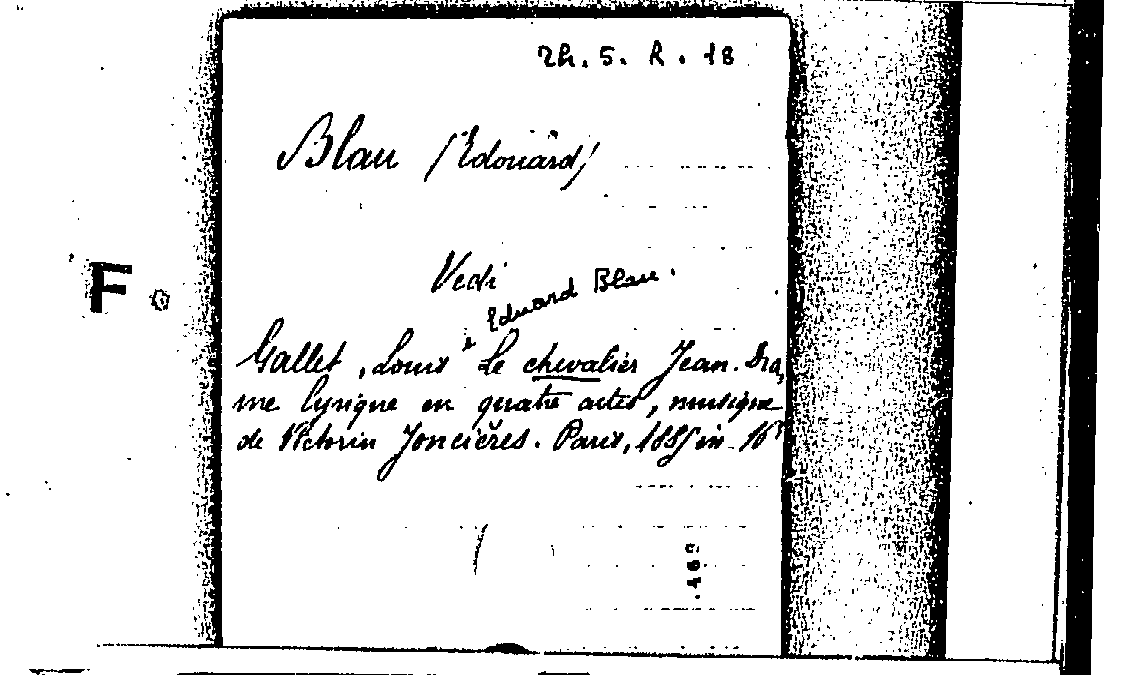 Th. 5. R. 18
Blau (Edouard)
Vedi
F.
e Eduard Blau.
Gallet, Louis Le chevalier Jean. Dra,
me lyrique en quatre actes, musique
de Victorin Joncières. Paris, 1885 in-16º
.169